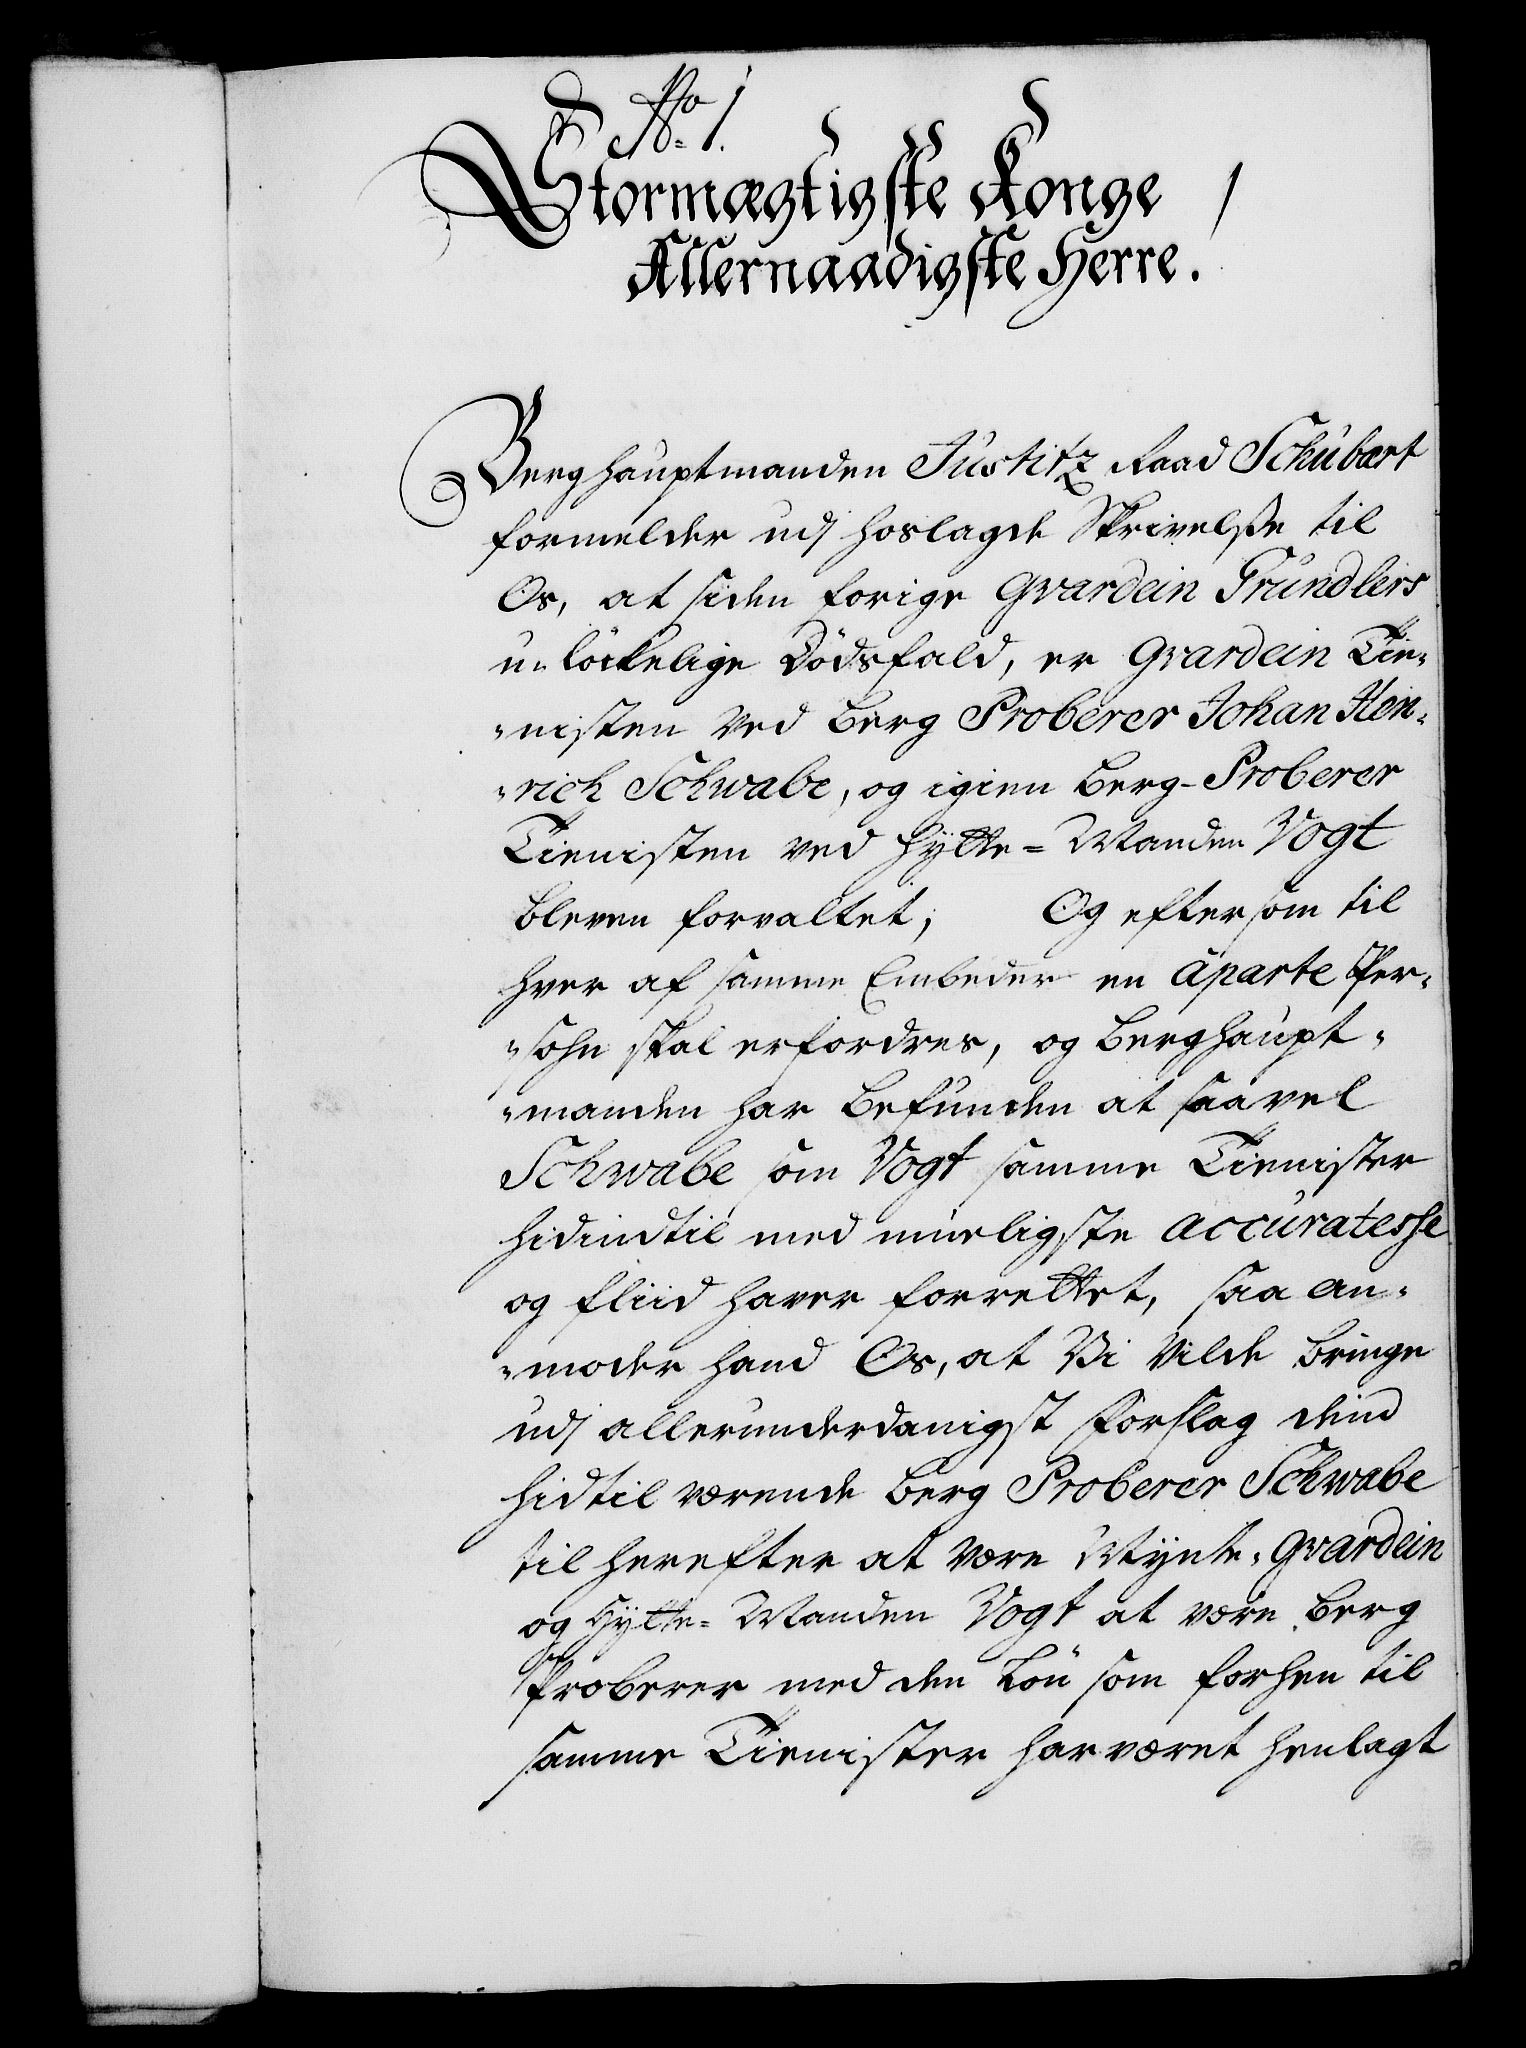 No. 1.
Stormægtigste Konge
Allernaadigste Herre.
Berghauptmanden Justitz Raad Schubart
formelder udj hoslagde Skrivelße til
Os, at siden forige Gvardein Gründlers
u-löckelige Dödsfald, er Gvardein Tie-
-nisten ved Berg Proberer Johan Hen-
-rich Schwabe, og igien Berg-Proberer
Tienisten ved Hÿtte-Manden Vogt
bleven forvaltet; Og eftersom til
hver af samme Embeder en aparte Per-
-sohn skal erfordres, og Berghaupt-
-manden har befunden at saavel
Schwabe som Vogt samme Tienister
hidindtil med mueligste accuratesse
og fliid haver forrettet, saa an-
-moder hand Os, at Vi vilde bringe
udj allerunderdanigst Forslag dend
hidtil værende Berg Proberer Schwabe
til herefter at være Mÿnte-Gvardein
og Hÿtte-Manden Vogt at være Berg
Proberer med den Lön som forhen til
samme Tienister har været henlagt